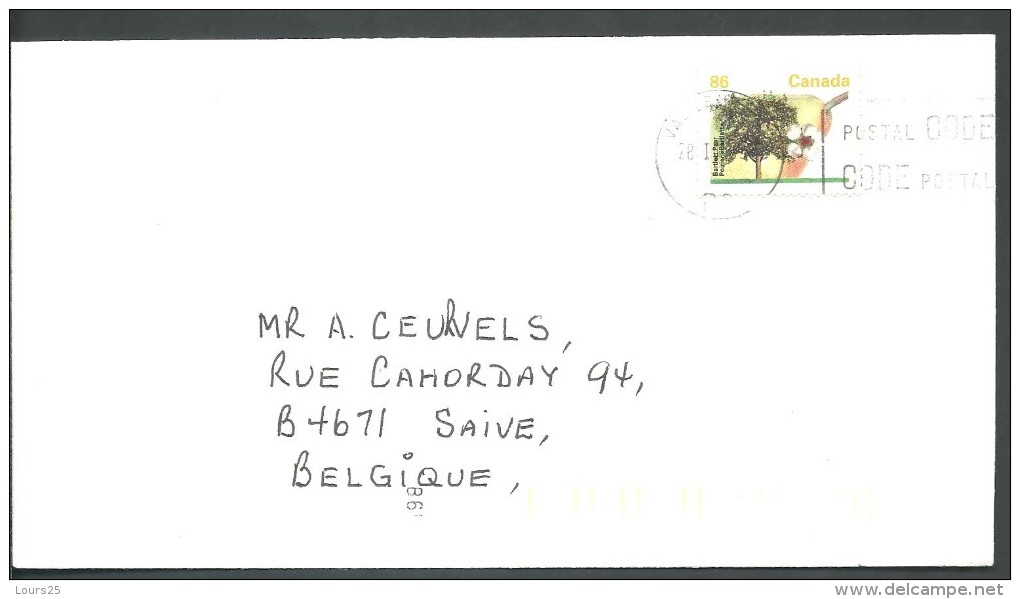 86 Canada
Bartlett Pear
POSTAL CODE
28 I
CODE POSTAL
MR A. CEURVELS,
RUE CAHORDAY 94,
B4671 SAIVE,
BELGIQUE,
Lours25
www.delcampe.net